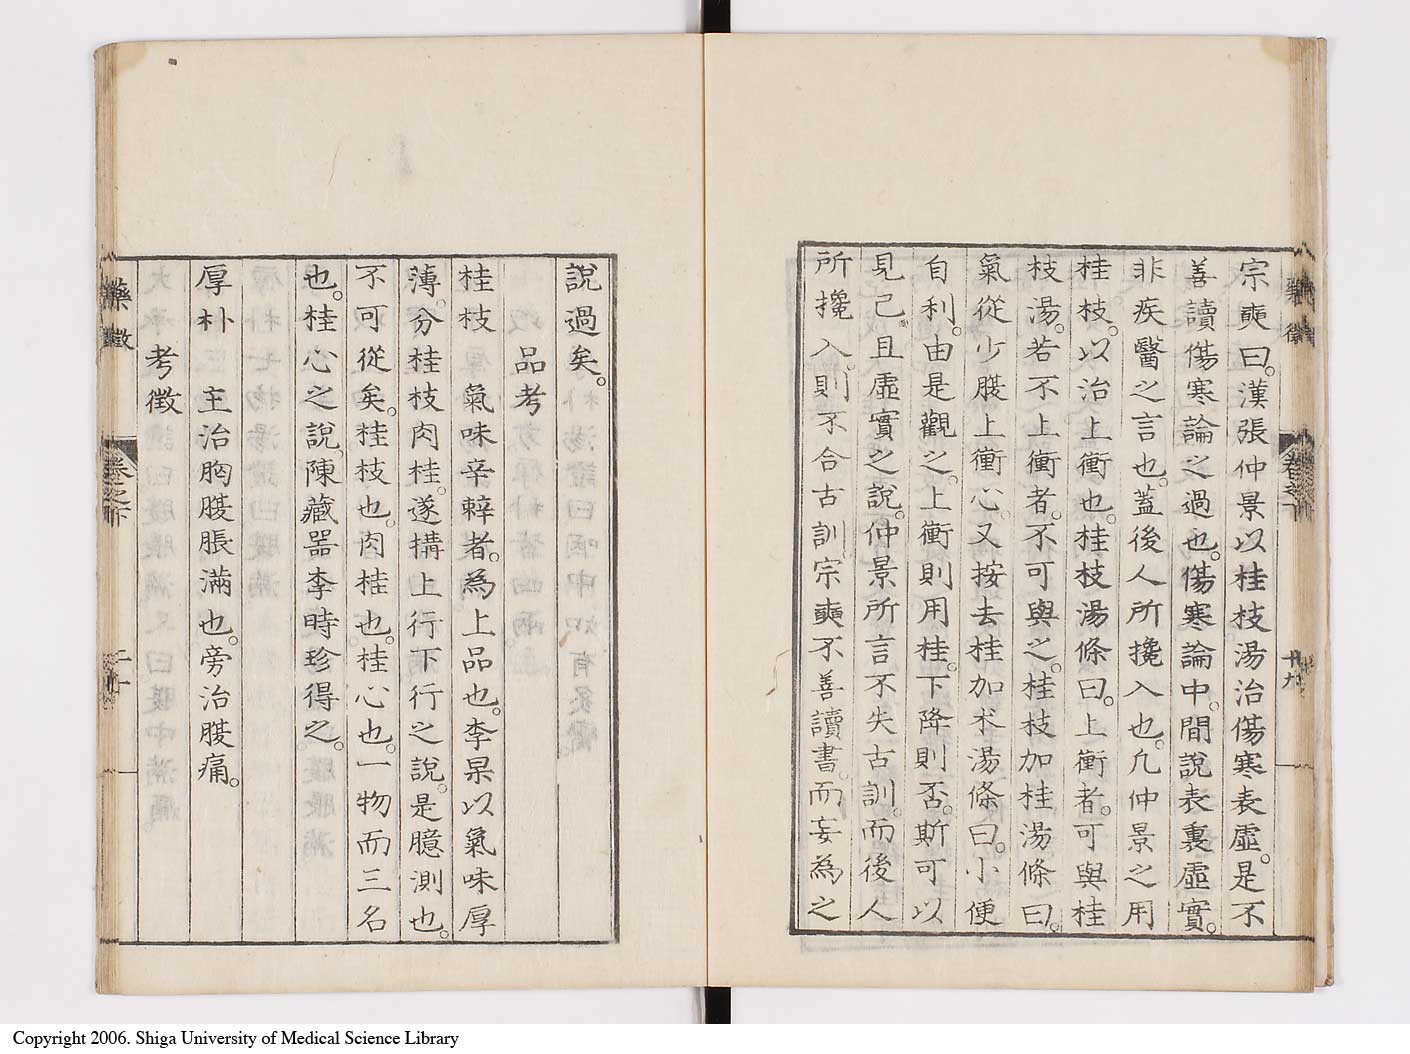 宗奭曰。漢張仲景以桂枝湯治傷寒表虛。是不
善讀傷寒論之過也。傷寒論中。間說表裏虛實。
非疾醫之言也。蓋後人所攙入也。凡仲景之用
桂枝。以治上衝也。桂枝湯條曰。上衝者。可與桂
枝湯。若不上衝者。不可與之。桂枝加桂湯條曰。
氣從少腹上衝心。又按去桂加朮湯條曰。小便
自利。由是觀之。上衝則用桂。下降則否。斯可以
見已。且虛實之說。仲景所言不失古訓。而後人
所攙入。則不合古訓。宗奭不善讀書。而妄為之
藥徵
卷之下
十九
說過矣。
品考
桂枝 氣味辛辣者。為上品也。李杲以氣味厚
薄。分桂枝肉桂。遂搆上行下行之說。是臆測也。
不可從矣。桂枝也。肉桂也。桂心也。一物而三名
也。桂心之說。陳藏器李時珍得之。
厚朴 主治胸腹脹滿也。旁治腹痛。
考徵
藥徵
卷之下
二十
Copyright 2006. Shiga University of Medical Science Library